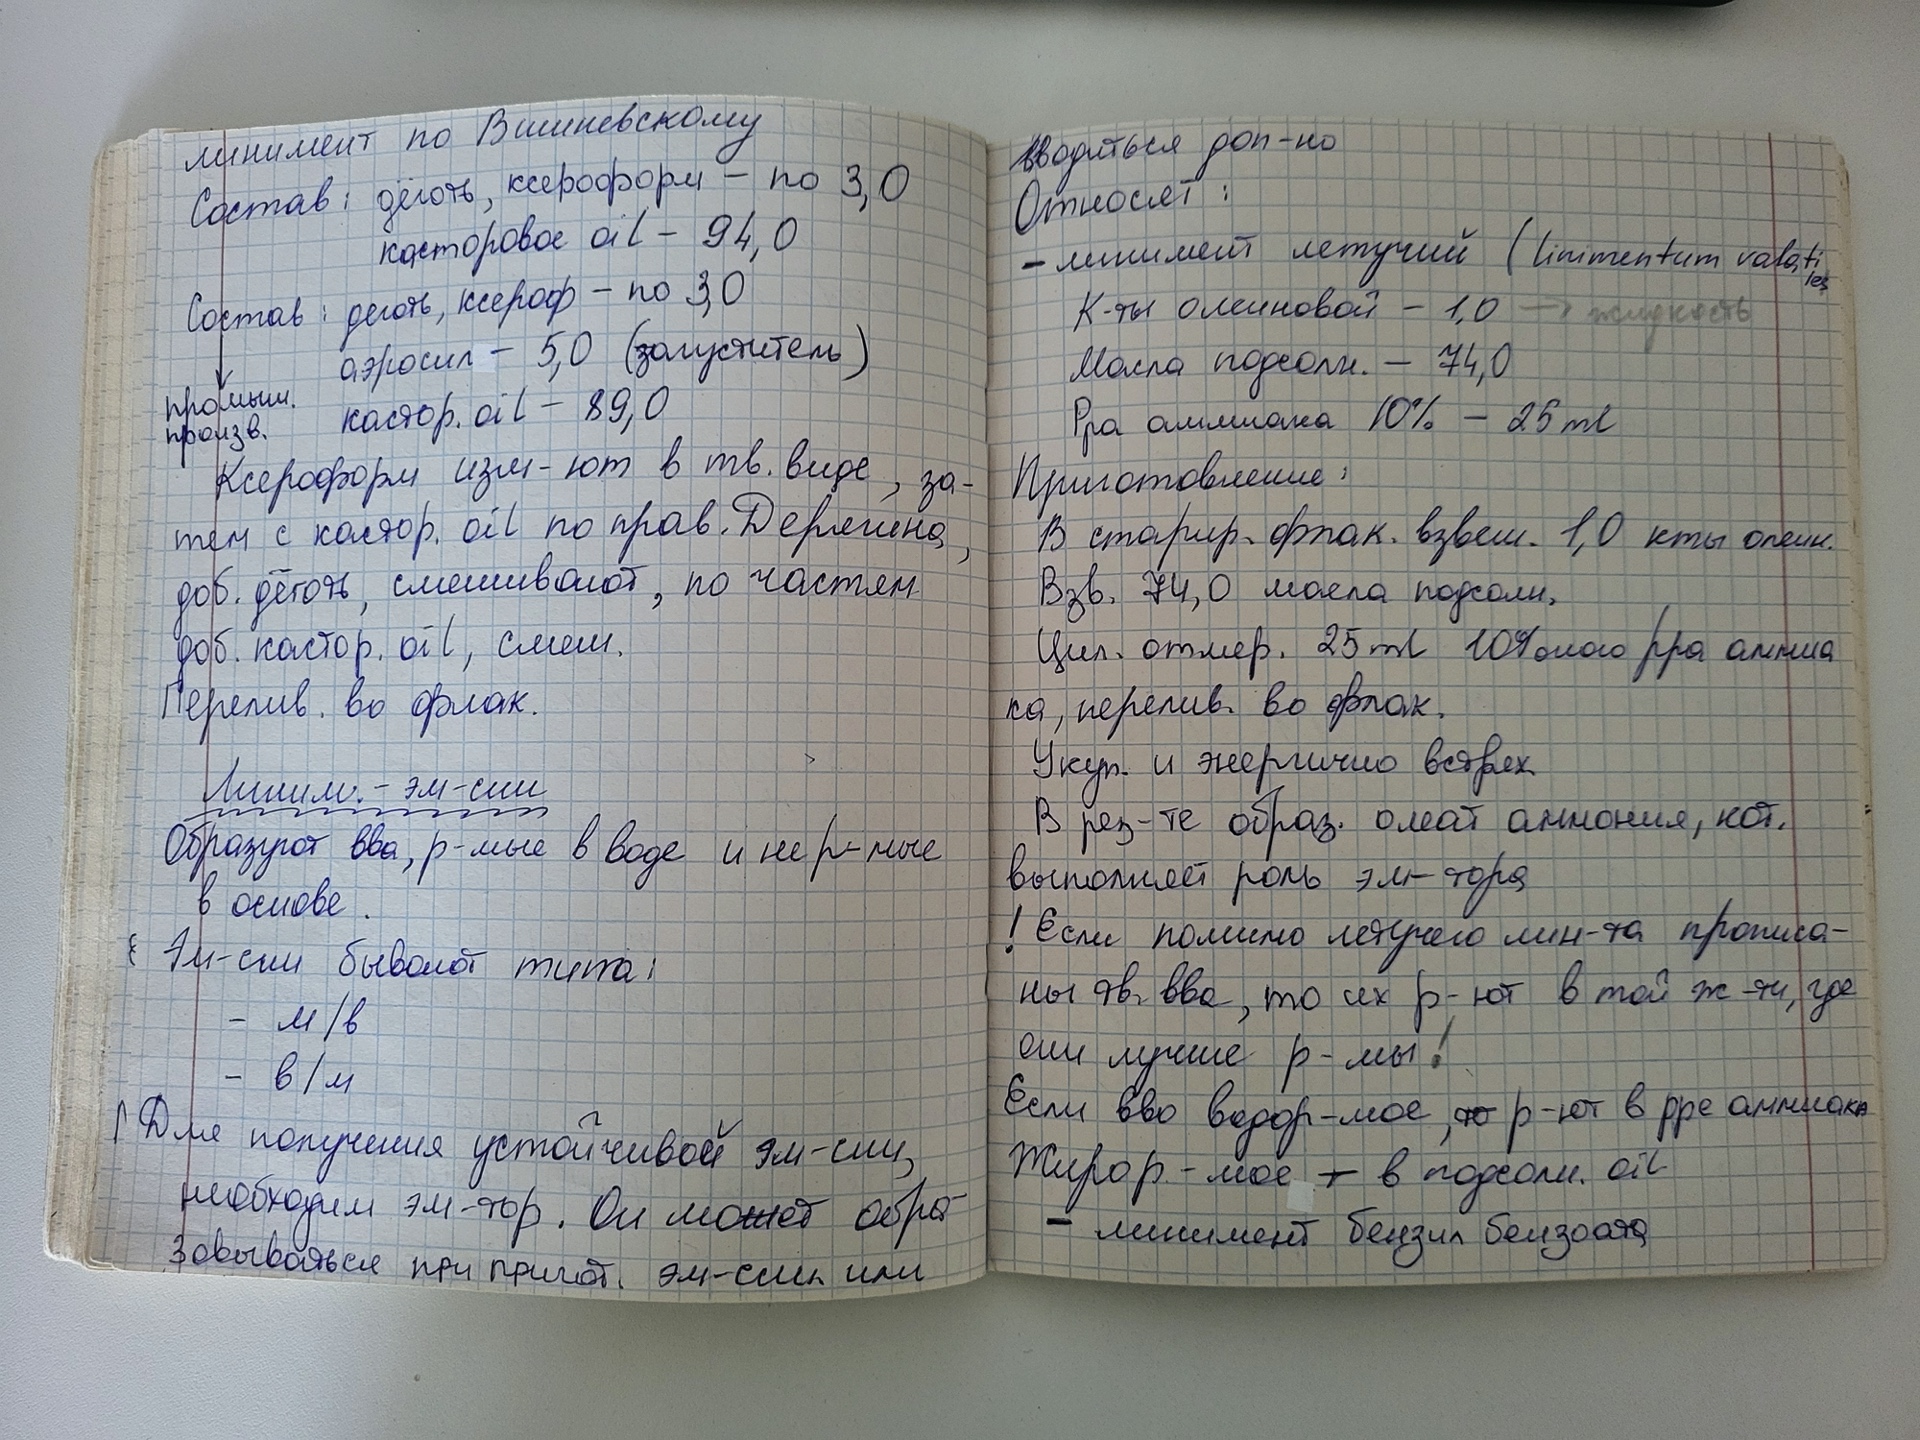 линимент по Вишневскому
Состав: дёготь, ксероформ – по 3,0
касторовое oil – 94,0
Состав: деготь, ксероф – по 3,0
аэросил – 5,0 (загуститель)
промыш.
произв.
кастор. oil – 89,0
Ксероформ изм-ют в тв. виде, за-
тем с кастор. oil по прав. Дерягина,
доб. дёготь, смешивают, по частям
доб. кастор. oil, смеш.
Перелив. во флак.
Линим. – эм-сии
Образуют вва, р-мые в воде и не р-мые
в основе.
Эм-сии бывают типа:
- м/в
- в/м
Для получения устойчивой эм-сии,
необходим эм-тор. Он может обра
зовываться при пригот. эм-сии или
вводиться доп-но
Относят:
- линимент летучий (linimentum valati
les
К-ты олеиновой – 1,0 → жидкость
Масла подсолн. – 74,0
Рра аммиака 10% – 25 ml
Приготовление:
В старир. флак. взвеш. 1,0 кты олеин.
Взв. 74,0 масла подсолн.
Цил. отмер. 25 ml 10%ого рра аммиа
ка, перелив. во флак.
Укуп. и энергично встрях
В рез-те образ. олеат аммония, кот.
выполняет роль эм-тора
! Если помимо летучего лин-та прописа-
ны тв. вва, то их р-ют в той ж-ти, где
они лучше р-мы!
Если вво водор-мое, то р-ют в рре аммиака
Жирор-мое – в подсолн. oil
- линимент бензил бензоата